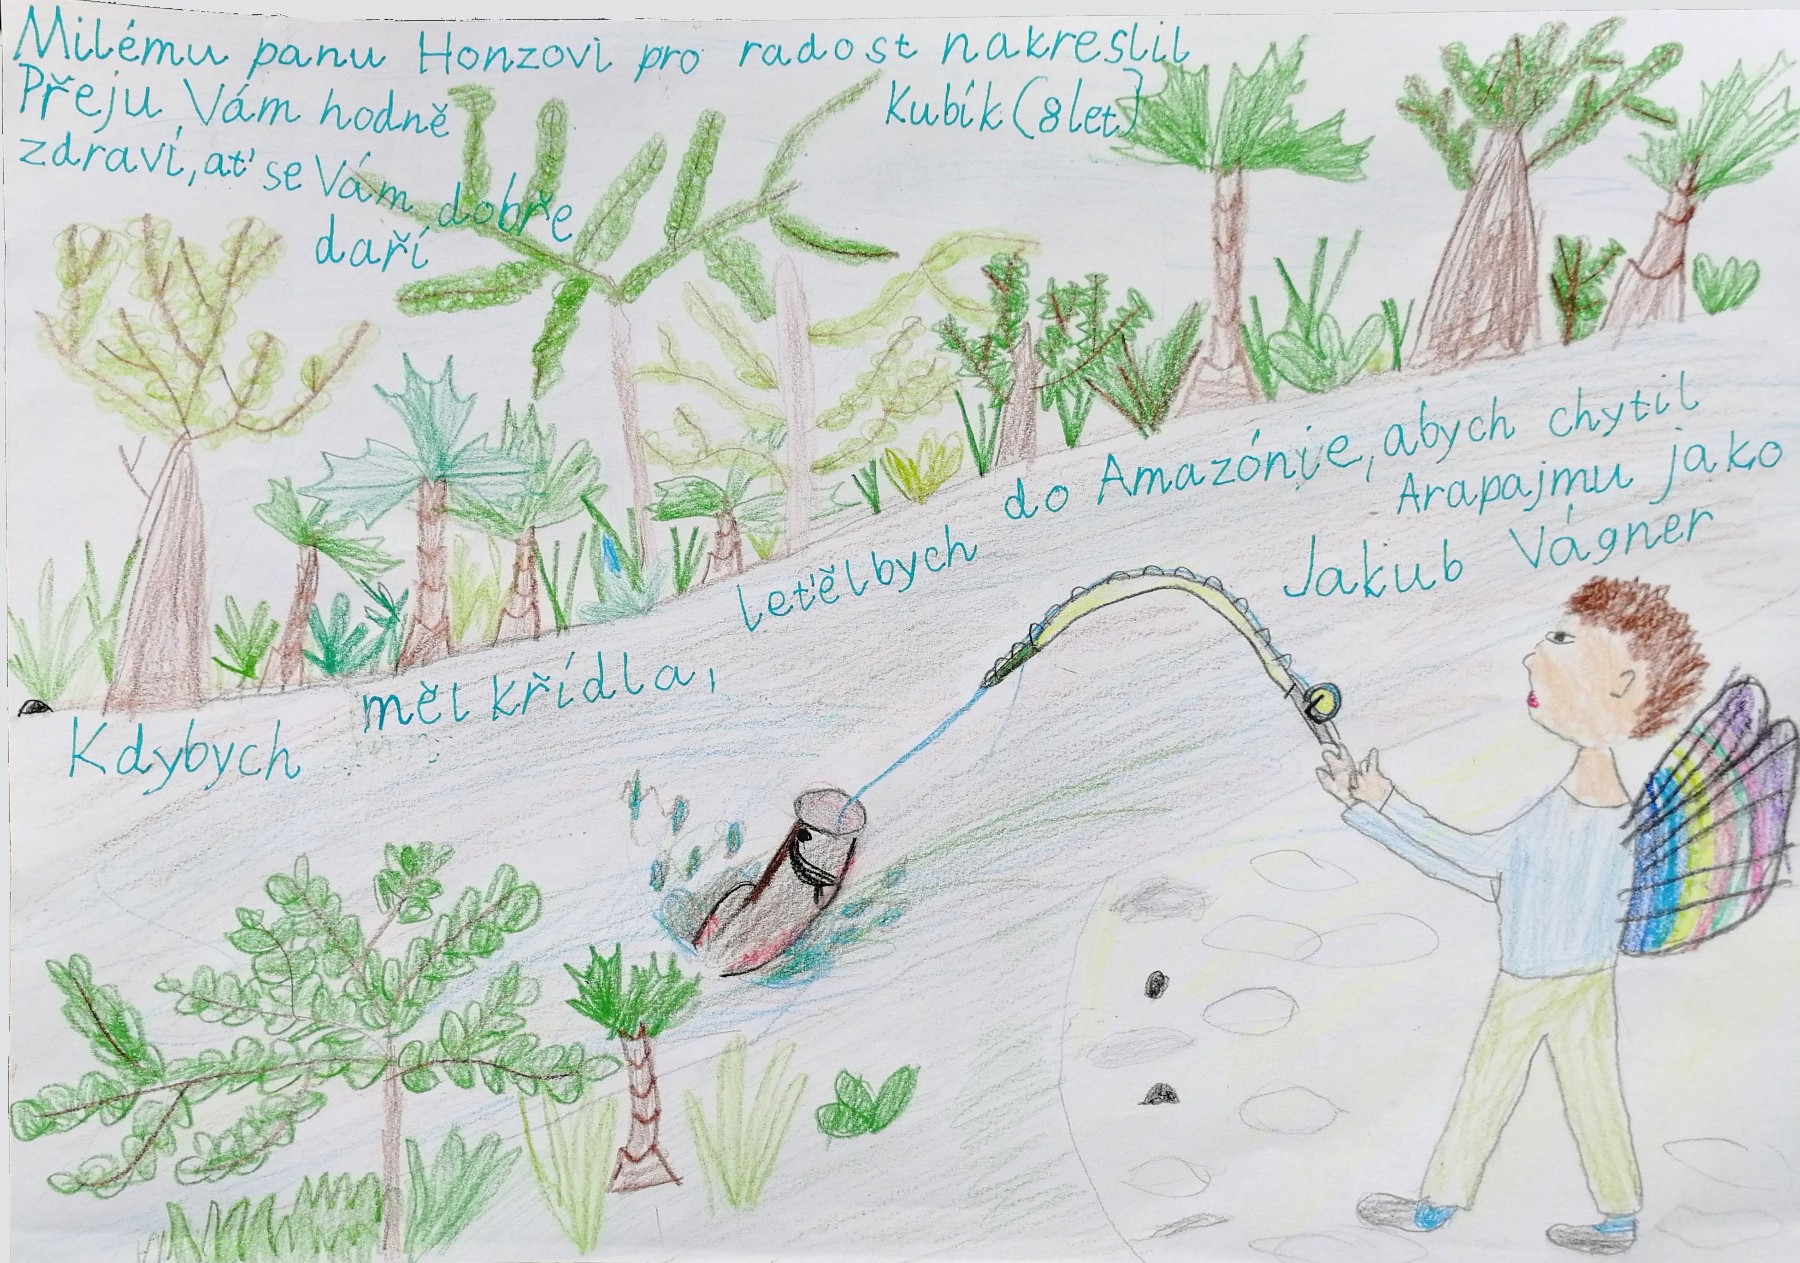 Milému panu Honzovi pro radost nakreslil
Kubík (8 let)
Přeju Vám hodně
zdraví, ať se Vám dobře
daří
Kdybych měl křídla,
leťěl bych do Amazónie, abych chytil
Arapajmu jako
Jakub Vágner